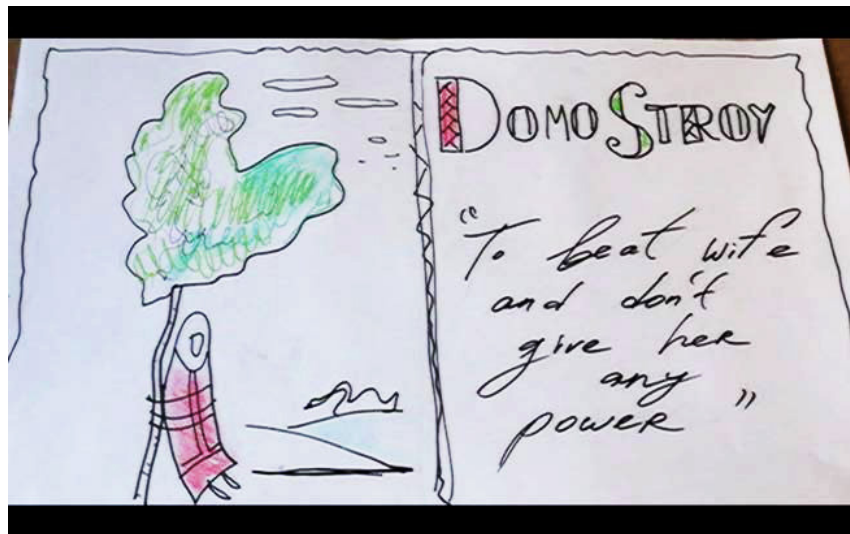 DOMOSTROY
"To beat wife
and don't
give her
any
power"